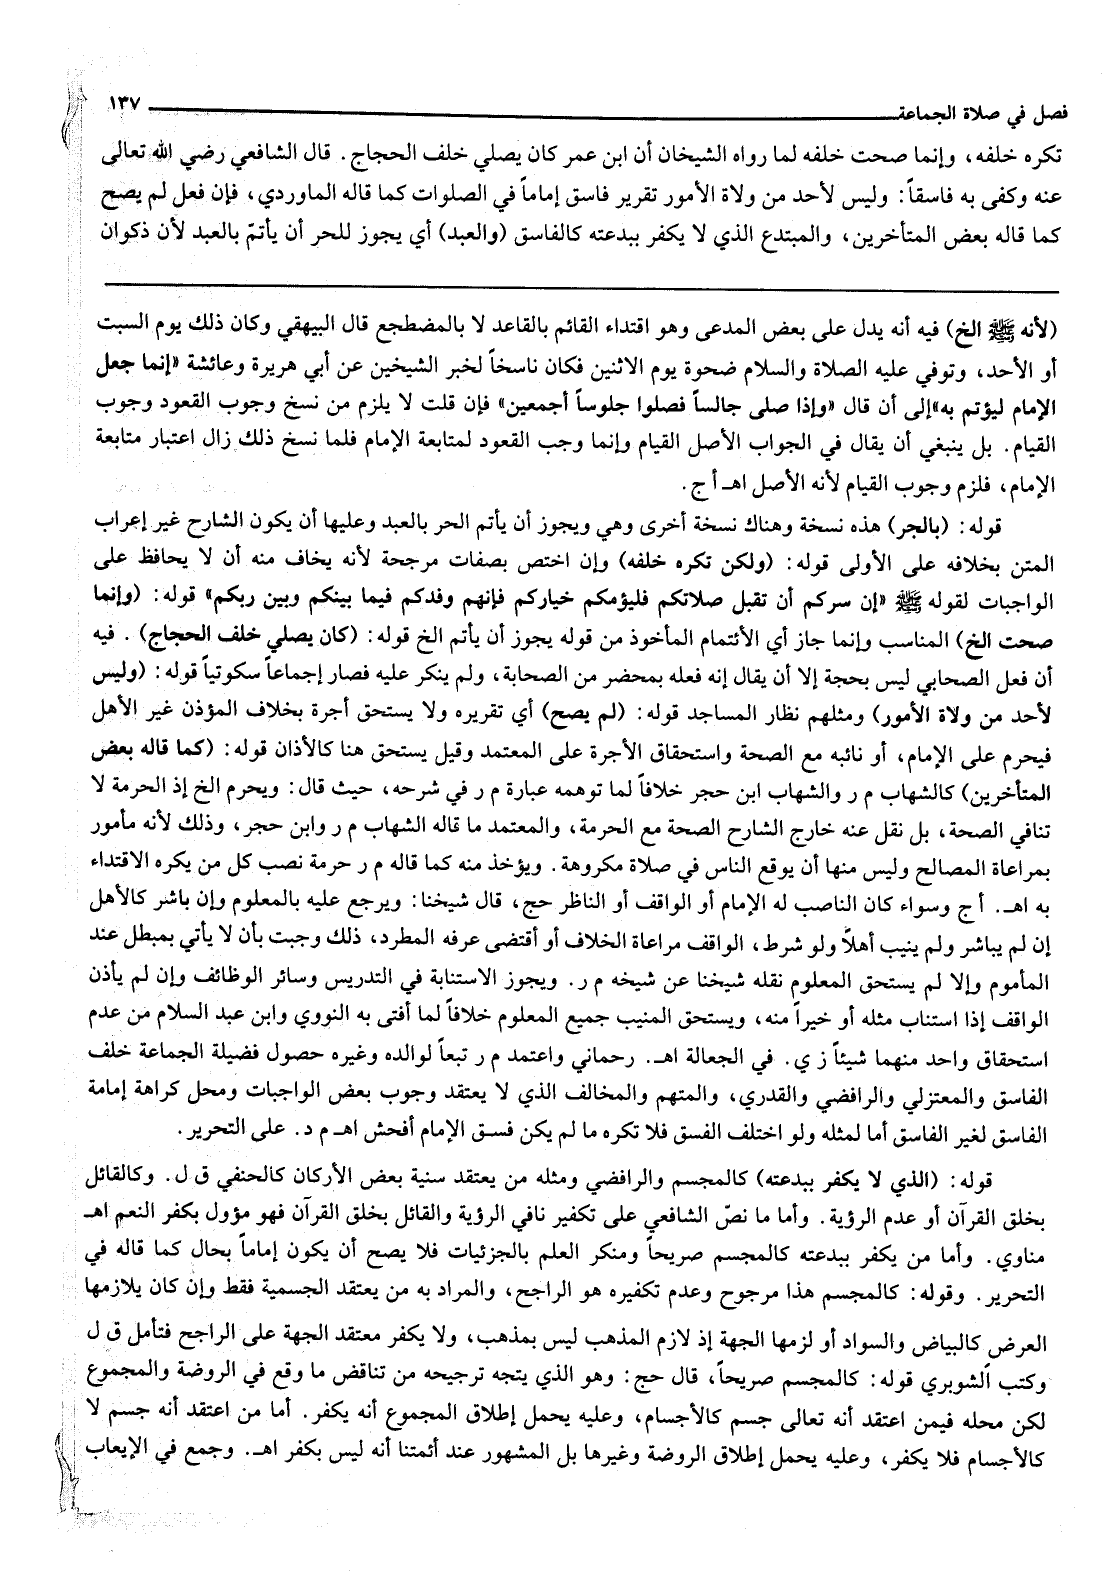 فصل في صلاة الجماعة ١٣٧
تكره خلفه، وإنما صحت خلفه لما رواه الشيخان أن ابن عمر كان يصلي خلف الحجاج. قال الشافعي رضي الله تعالى
عنه وكفى به فاسقاً: وليس لأحد من ولاة الأمور تقرير فاسق إماماً في الصلوات كما قاله الماوردي، فإن فعل لم يصح
كما قاله بعض المتأخرين، والمبتدع الذي لا يكفر ببدعته كالفاسق (والعبد) أي يجوز للحر أن يأتمّ بالعبد لأن ذكوان
(لأنه ﷺ الخ) فيه أنه يدل على بعض المدعى وهو اقتداء القائم بالقاعد لا بالمضطجع قال البيهقي وكان ذلك يوم السبت
أو الأحد، وتوفي عليه الصلاة والسلام ضحوة يوم الاثنين فكان ناسخاً لخبر الشيخين عن أبي هريرة وعائشة «إنما جعل
الإمام ليؤتم به»إلى أن قال «وإذا صلى جالساً فصلوا جلوساً أجمعين» فإن قلت لا يلزم من نسخ وجوب القعود وجوب
القيام. بل ينبغي أن يقال في الجواب الأصل القيام وإنما وجب القعود لمتابعة الإمام فلما نسخ ذلك زال اعتبار متابعة
الإمام، فلزم وجوب القيام لأنه الأصل اهـ أ ج.
قوله: (بالجر) هذه نسخة وهناك نسخة أخرى وهي ويجوز أن يأتم الحر بالعبد وعليها أن يكون الشارح غير إعراب
المتن بخلافه على الأولى قوله: (ولكن تكره خلفه) وإن اختص بصفات مرجحة لأنه يخاف منه أن لا يحافظ على
الواجبات لقوله ﷺ «إن سركم أن تقبل صلاتكم فليؤمكم خياركم فإنهم وفدكم فيما بينكم وبين ربكم» قوله: (وإنما
صحت الخ) المناسب وإنما جاز أي الأئتمام المأخوذ من قوله يجوز أن يأتم الخ قوله: (كان يصلي خلف الحجاج). فيه
أن فعل الصحابي ليس بحجة إلا أن يقال إنه فعله بمحضر من الصحابة، ولم ينكر عليه فصار إجماعاً سكوتياً قوله: (وليس
لأحد من ولاة الأمور) ومثلهم نظار المساجد قوله: (لم يصح) أي تقريره ولا يستحق أجرة بخلاف المؤذن غير الأهل
فيحرم على الإمام، أو نائبه مع الصحة واستحقاق الأجرة على المعتمد وقيل يستحق هنا كالأذان قوله: (كما قاله بعض
المتأخرين) كالشهاب م ر والشهاب ابن حجر خلافاً لما توهمه عبارة م ر في شرحه، حيث قال: ويحرم الخ إذ الحرمة لا
تنافي الصحة، بل نقل عنه خارج الشارح الصحة مع الحرمة، والمعتمد ما قاله الشهاب م ر وابن حجر، وذلك لأنه مأمور
بمراعاة المصالح وليس منها أن يوقع الناس في صلاة مكروهة. ويؤخذ منه كما قاله م ر حرمة نصب كل من يكره الاقتداء
به اهـ. أ ج وسواء كان الناصب له الإمام أو الواقف أو الناظر حج، قال شيخنا: ويرجع عليه بالمعلوم وإن باشر كالأهل
إن لم يباشر ولم ينيب أهلاً ولو شرط، الواقف مراعاة الخلاف أو أقتضى عرفه المطرد، ذلك وجبت بأن لا يأتي بمبطل عند
المأموم وإلا لم يستحق المعلوم نقله شيخنا عن شيخه م ر. ويجوز الاستنابة في التدريس وسائر الوظائف وإن لم يأذن
الواقف إذا استناب مثله أو خيراً منه، ويستحق المنيب جميع المعلوم خلافاً لما أفتى به النووي وابن عبد السلام من عدم
استحقاق واحد منهما شيئاً ز ي. في الجعالة اهـ. رحماني واعتمد م ر تبعاً لوالده وغيره حصول فضيلة الجماعة خلف
الفاسق والمعتزلي والرافضي والقدري، والمتهم والمخالف الذي لا يعتقد وجوب بعض الواجبات ومحل كراهة إمامة
الفاسق لغير الفاسق أما لمثله ولو اختلف الفسق فلا تكره ما لم يكن فسق الإمام أفحش اهـ م د. على التحرير.
قوله: (الذي لا يكفر ببدعته) كالمجسم والرافضي ومثله من يعتقد سنية بعض الأركان كالحنفي ق ل. وكالقائل
بخلق القرآن أو عدم الرؤية. وأما ما نصّ الشافعي على تكفير نافي الرؤية والقائل بخلق القرآن فهو مؤول بكفر النعم اهـ
مناوي. وأما من يكفر ببدعته كالمجسم صريحاً ومنكر العلم بالجزئيات فلا يصح أن يكون إماماً بحال كما قاله في
التحرير. وقوله: كالمجسم هذا مرجوح وعدم تكفيره هو الراجح، والمراد به من يعتقد الجسمية فقط وإن كان يلازمها
العرض كالبياض والسواد أو لزمها الجهة إذ لازم المذهب ليس بمذهب، ولا يكفر معتقد الجهة على الراجح فتأمل ق ل
وكتب الشوبري قوله: كالمجسم صريحاً، قال حج: وهو الذي يتجه ترجيحه من تناقض ما وقع في الروضة والمجموع
لكن محله فيمن اعتقد أنه تعالى جسم كالأجسام، وعليه يحمل إطلاق المجموع أنه يكفر. أما من اعتقد أنه جسم لا
كالأجسام فلا يكفر، وعليه يحمل إطلاق الروضة وغيرها بل المشهور عند أئمتنا أنه ليس بكفر اهـ. وجمع في الإيعاب